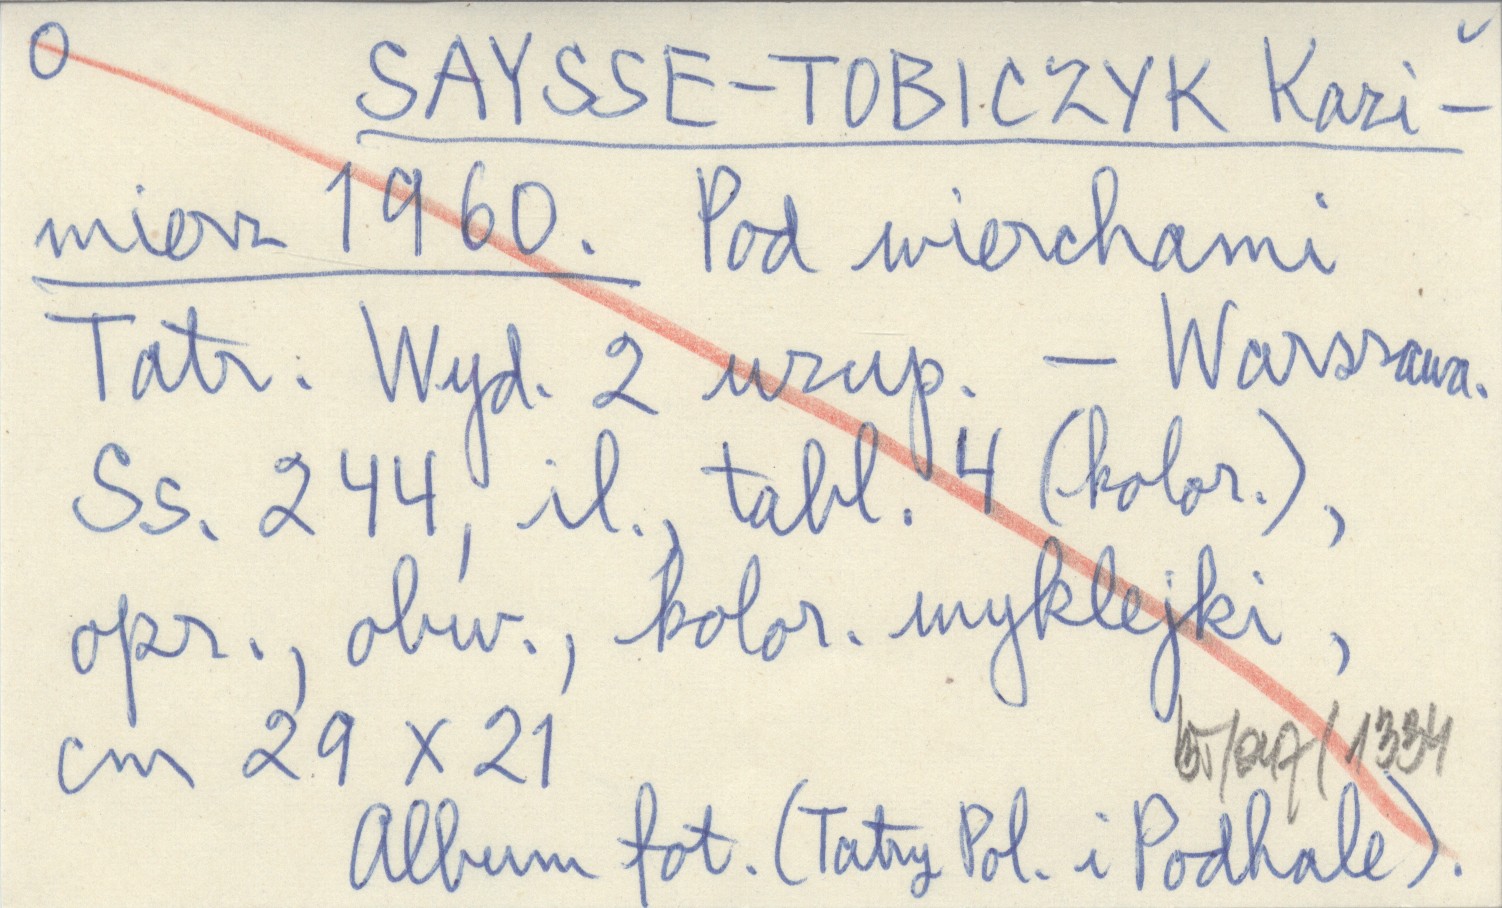 O SAYSSE-TOBICZYK Kazi-
mierz 1960. Pod wierchami
Tatr. Wyd. 2 uzup. — Warszawa.
Ss. 244, il., tabl. 4 (kolor.),
opr., obw., kolor. wyklejki,
cm 29 x 21
1334
Album fot. (Tatry Pol. i Podhale).